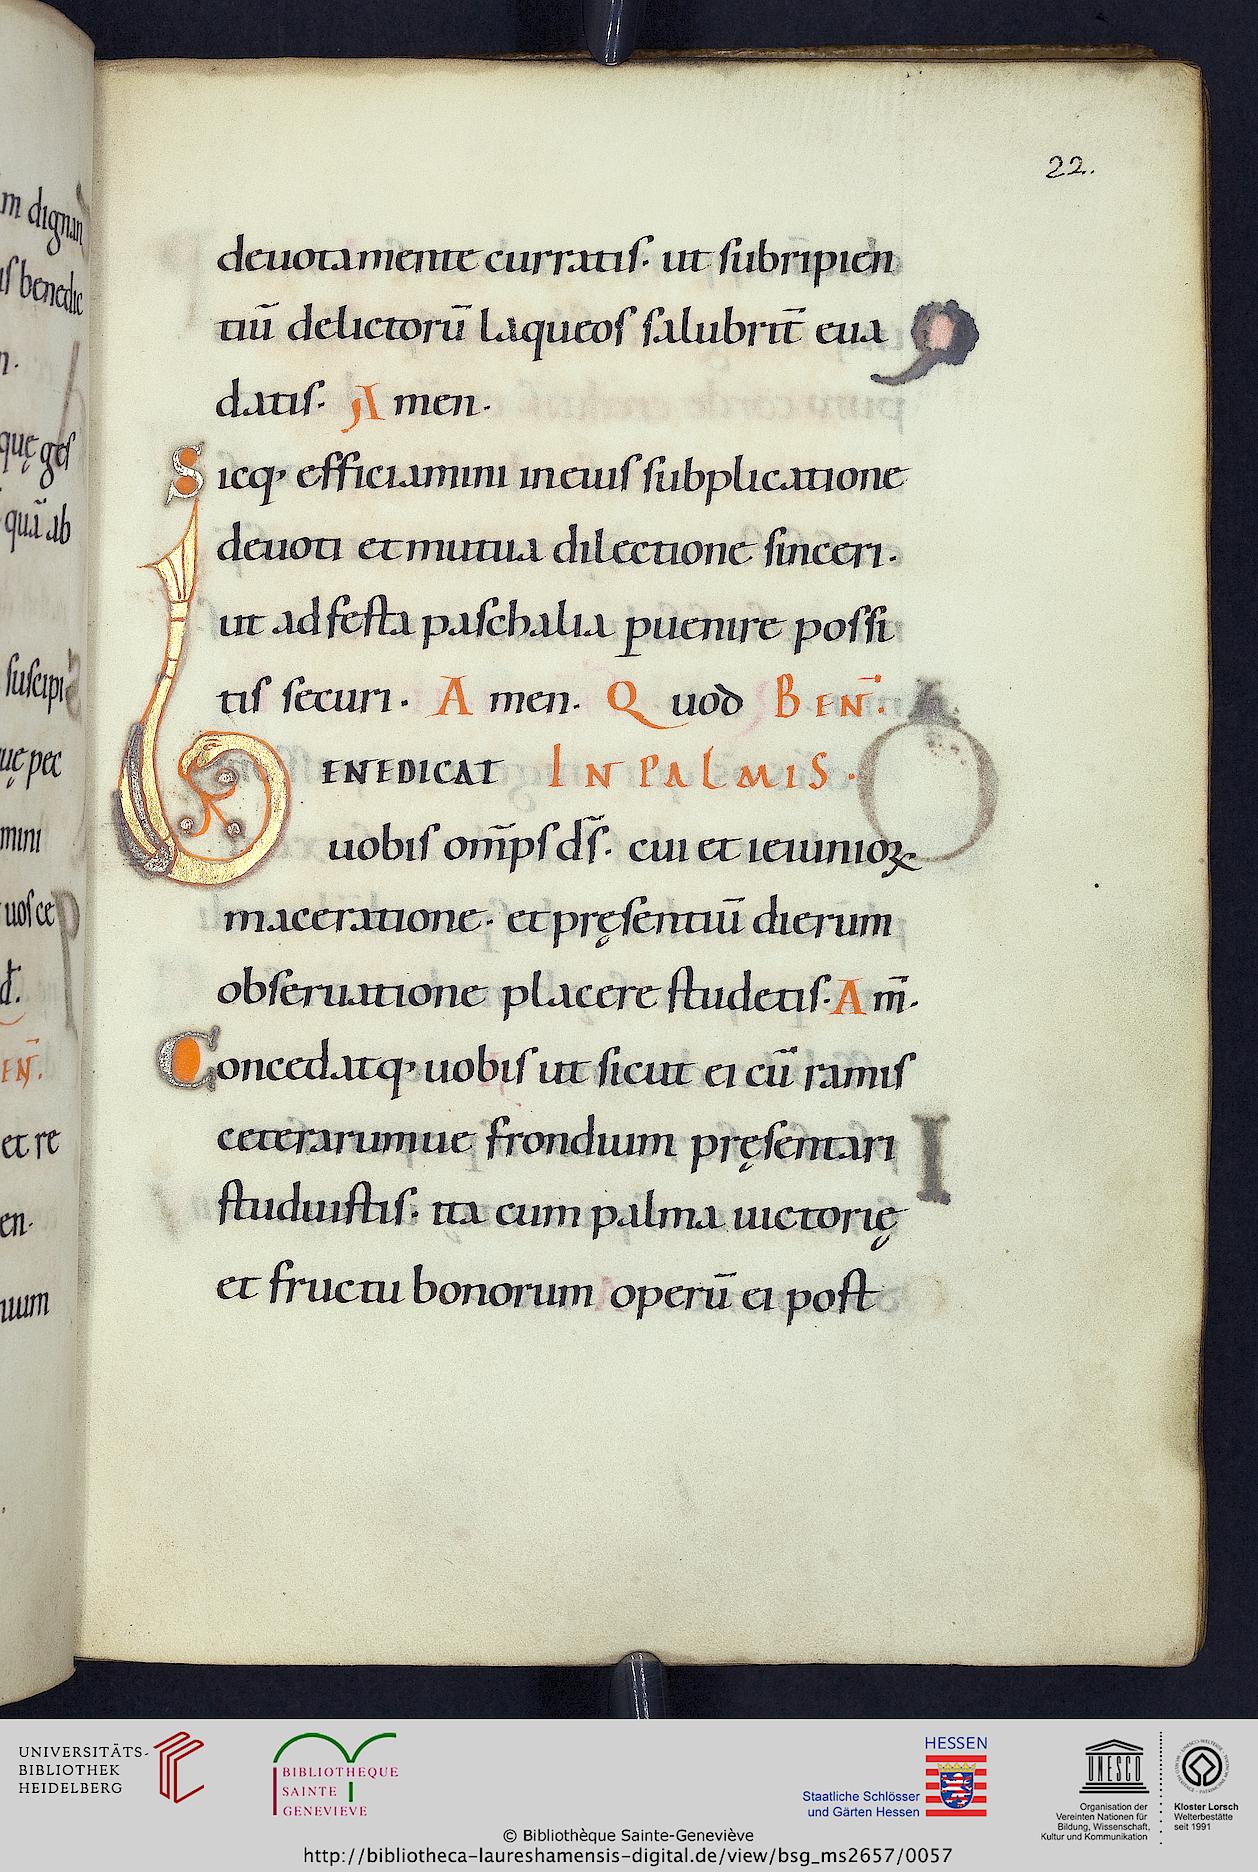 22.
deuotamente curratis. ut subripien
tiū delictorū laqueos salubrit̄ eua
datis. Amen.
Sicq; efficiamini in eius subplicatione
deuoti et mutua dilectione sinceri.
ut ad festa paschalia ꝑuenire possi
tis securi. Amen. Quod BEN̄.
BENEDICAT IN PALMIS.
uobis om̄ps d̄s. cui et ieiunioꝝ
maceratione. et pręsentiū dierum
obseruatione placere studetis. Am̄.
Concedatq; uobis ut sicut ei cū ramis
ceterarumue frondium pręsentari
studuistis. ita cum palma uictorię
et fructu bonorum operū ei post
m dignan
us benedic
n.
quę ges
quā ab
suscipi
uę pec
mini
uos ce
EN̄.
et re
en.
UNIVERSITÄTS-
BIBLIOTHEK
HEIDELBERG
BIBLIOTHEQUE
SAINTE
GENEVIEVE
HESSEN
Staatliche Schlösser
und Gärten Hessen
UNESCO
Organisation der
Vereinten Nationen für
Bildung, Wissenschaft,
Kultur und Kommunikation
Kloster Lorsch
Welterbestätte
seit 1991
© Bibliothèque Sainte-Geneviève
http://bibliotheca-laureshamensis-digital.de/view/bsg_ms2657/0057